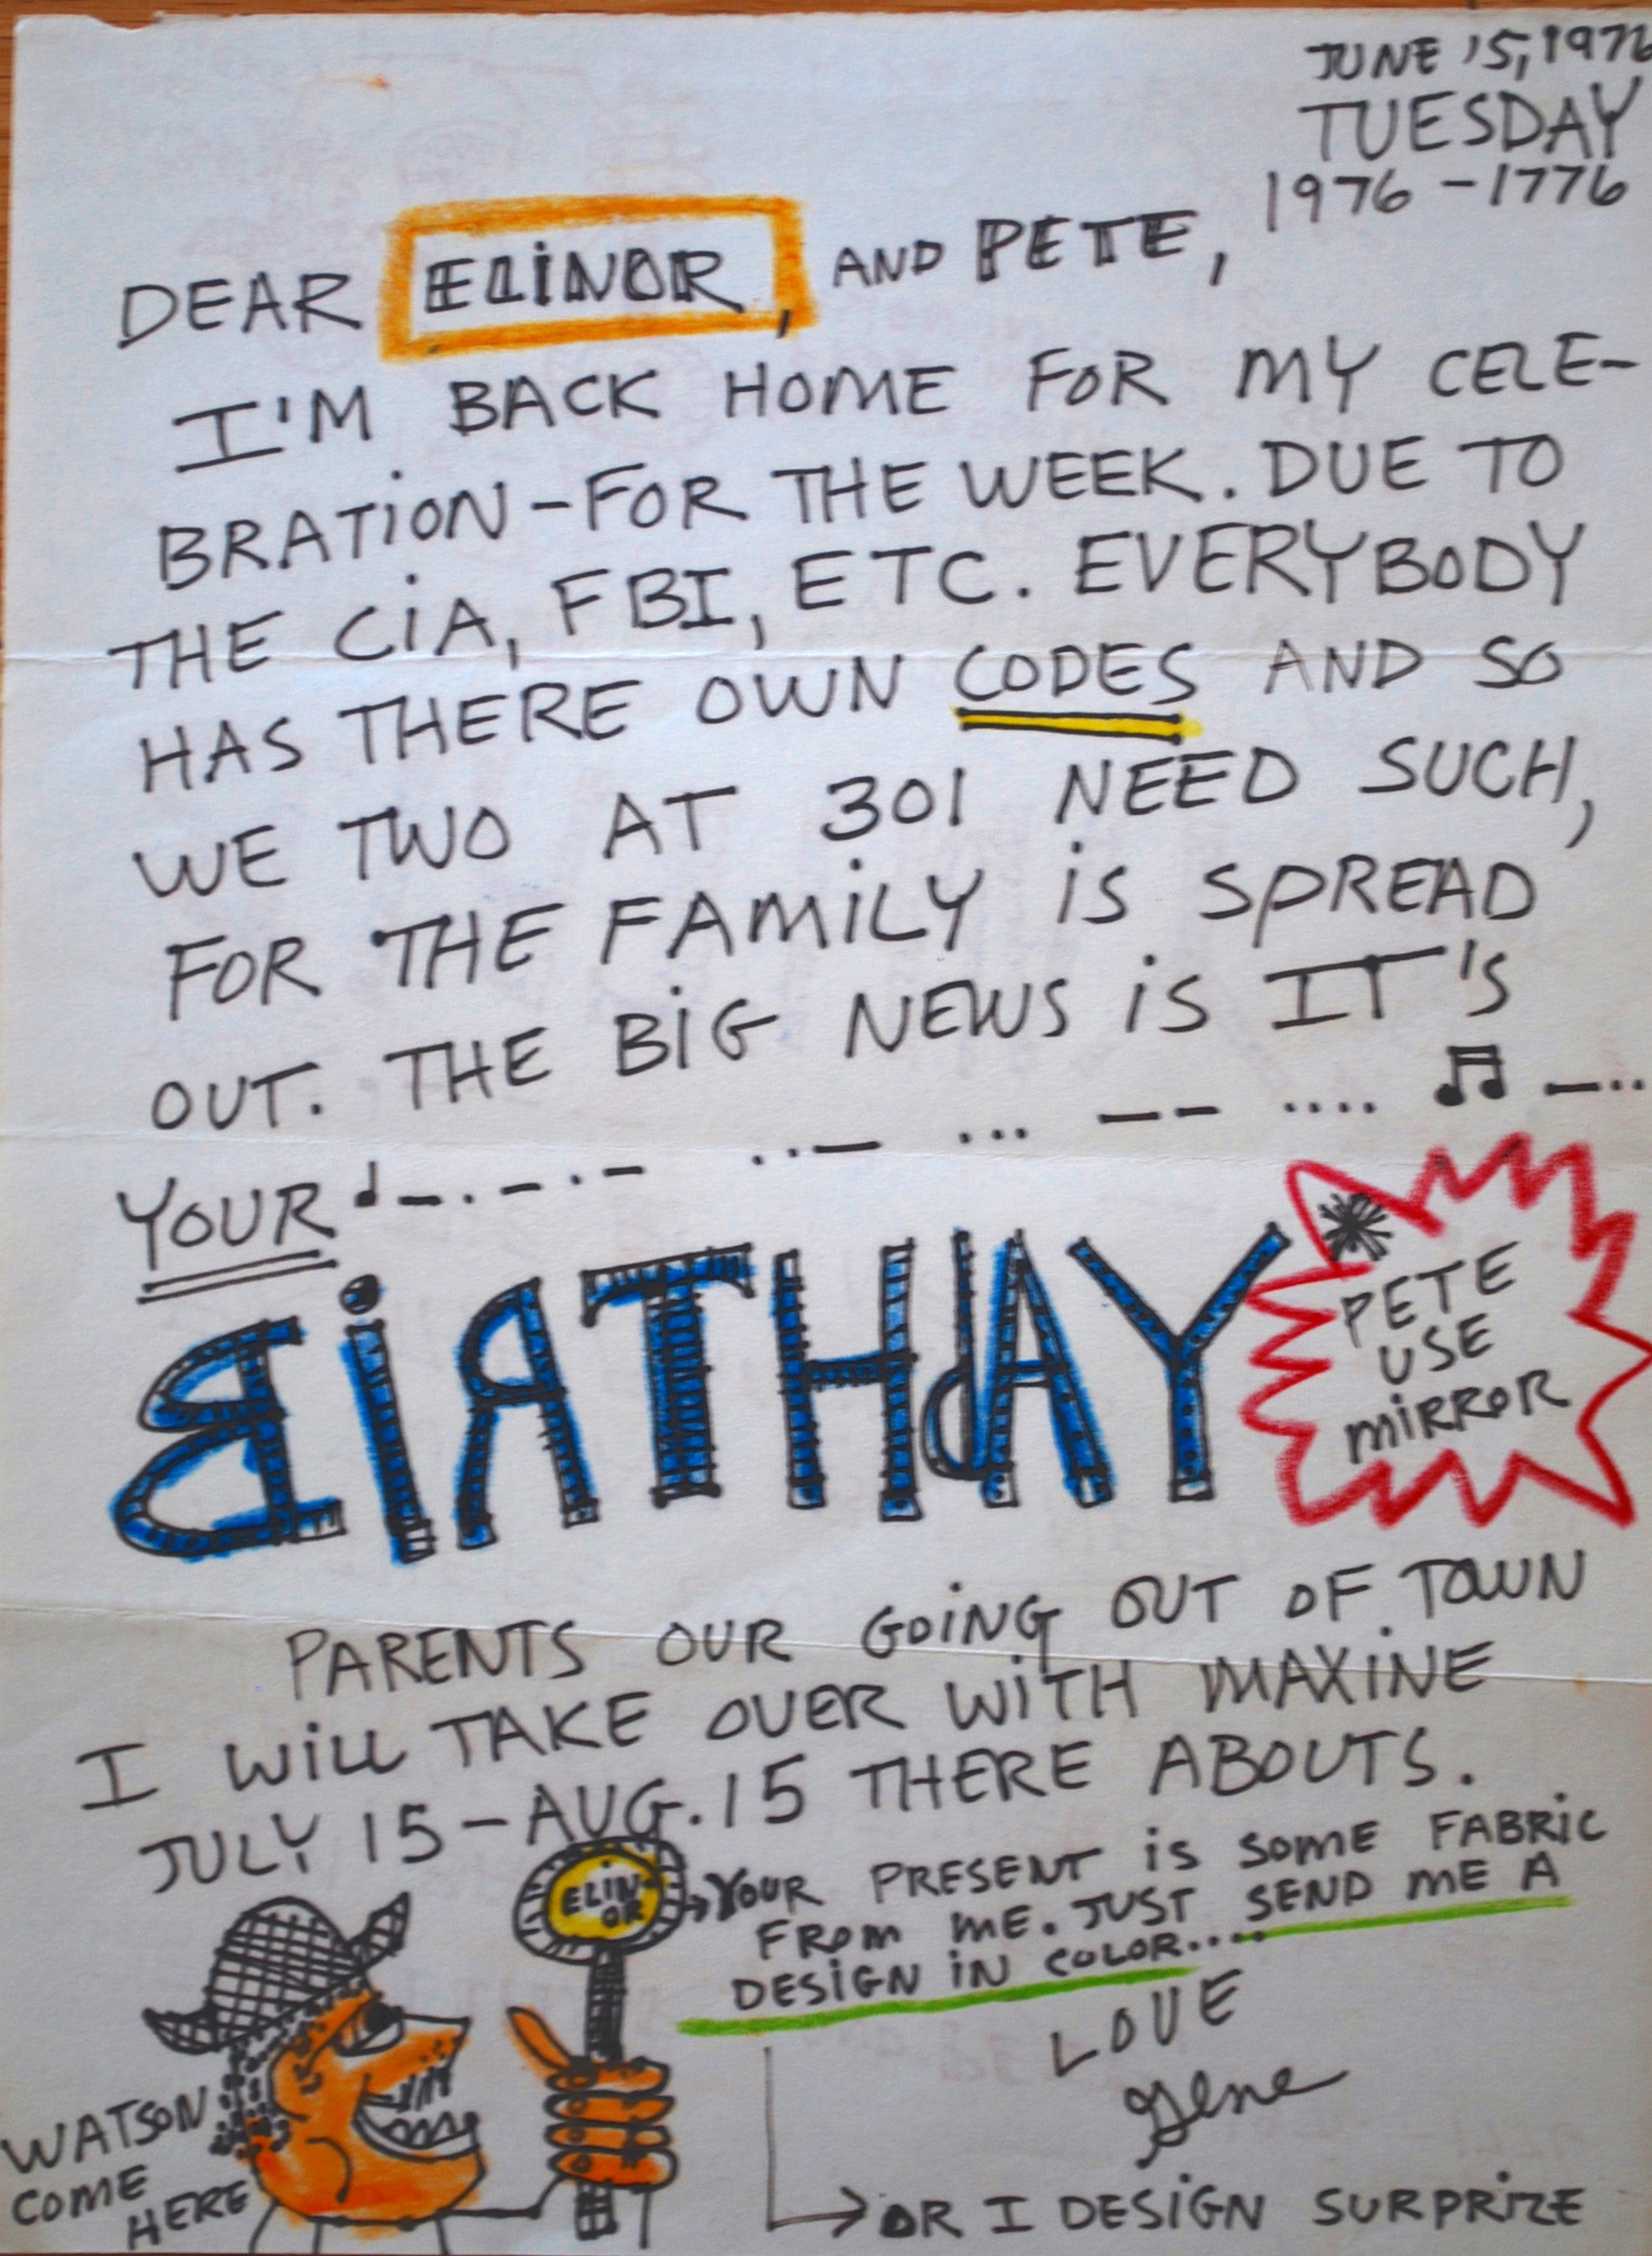 JUNE 15, 1976
TUESDAY
1976 - 1776
DEAR ELINOR, AND PETE,
I'M BACK HOME FOR MY CELE-
BRATION - FOR THE WEEK. DUE TO
THE CIA, FBI, ETC. EVERYBODY
HAS THERE OWN CODES AND SO
WE TWO AT 301 NEED SUCH,
FOR THE FAMILY IS SPREAD
OUT. THE BIG NEWS IS IT'S
YOUR ♩ — . — . — .. — ... — — .... ♫ — ...
BIRTHdAY
* PETE
USE
MIRROR
PARENTS OUR GOING OUT OF TOWN
I WILL TAKE OVER WITH MAXINE
JULY 15 - AUG. 15 THERE ABOUTS.
ELIN
OR
→ YOUR PRESENT IS SOME FABRIC
FROM ME. JUST SEND ME A
DESIGN IN COLOR.....
LOVE
Gene
WATSON
COME
HERE
→ OR I DESIGN SURPRIZE